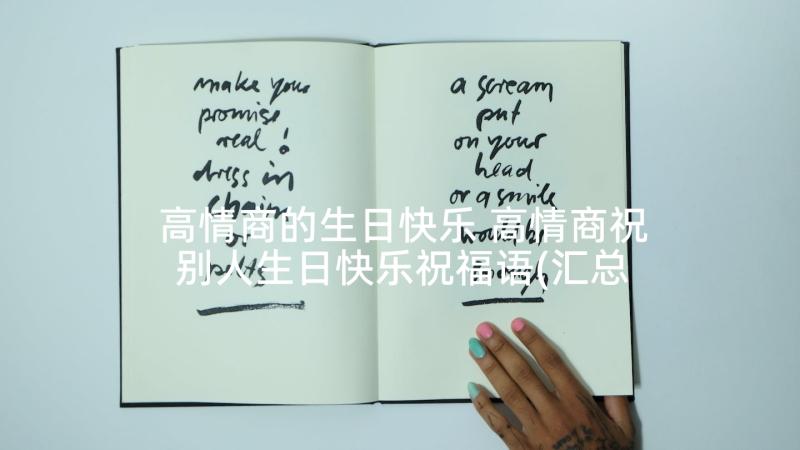 make your
promise
real!
dress in
chains
or
belts
a scream
put
on your
head
or a smile
would be
enough
高情商的生日快乐 高情商祝
别人生日快乐祝福语(汇总